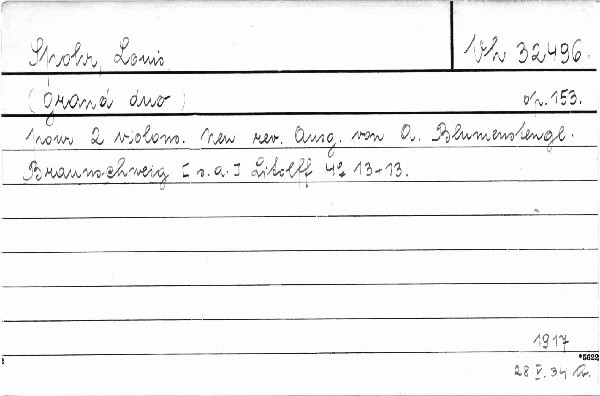 Spohr, Louis Vh 32496.
(Grand duo) op. 153.
pour 2 violons. Neu rev. Ausg. von A. Blumenstengl.
Braunschweig [s.a.] Litolff 4° 13+13.
1917
*5622
28 V. 34